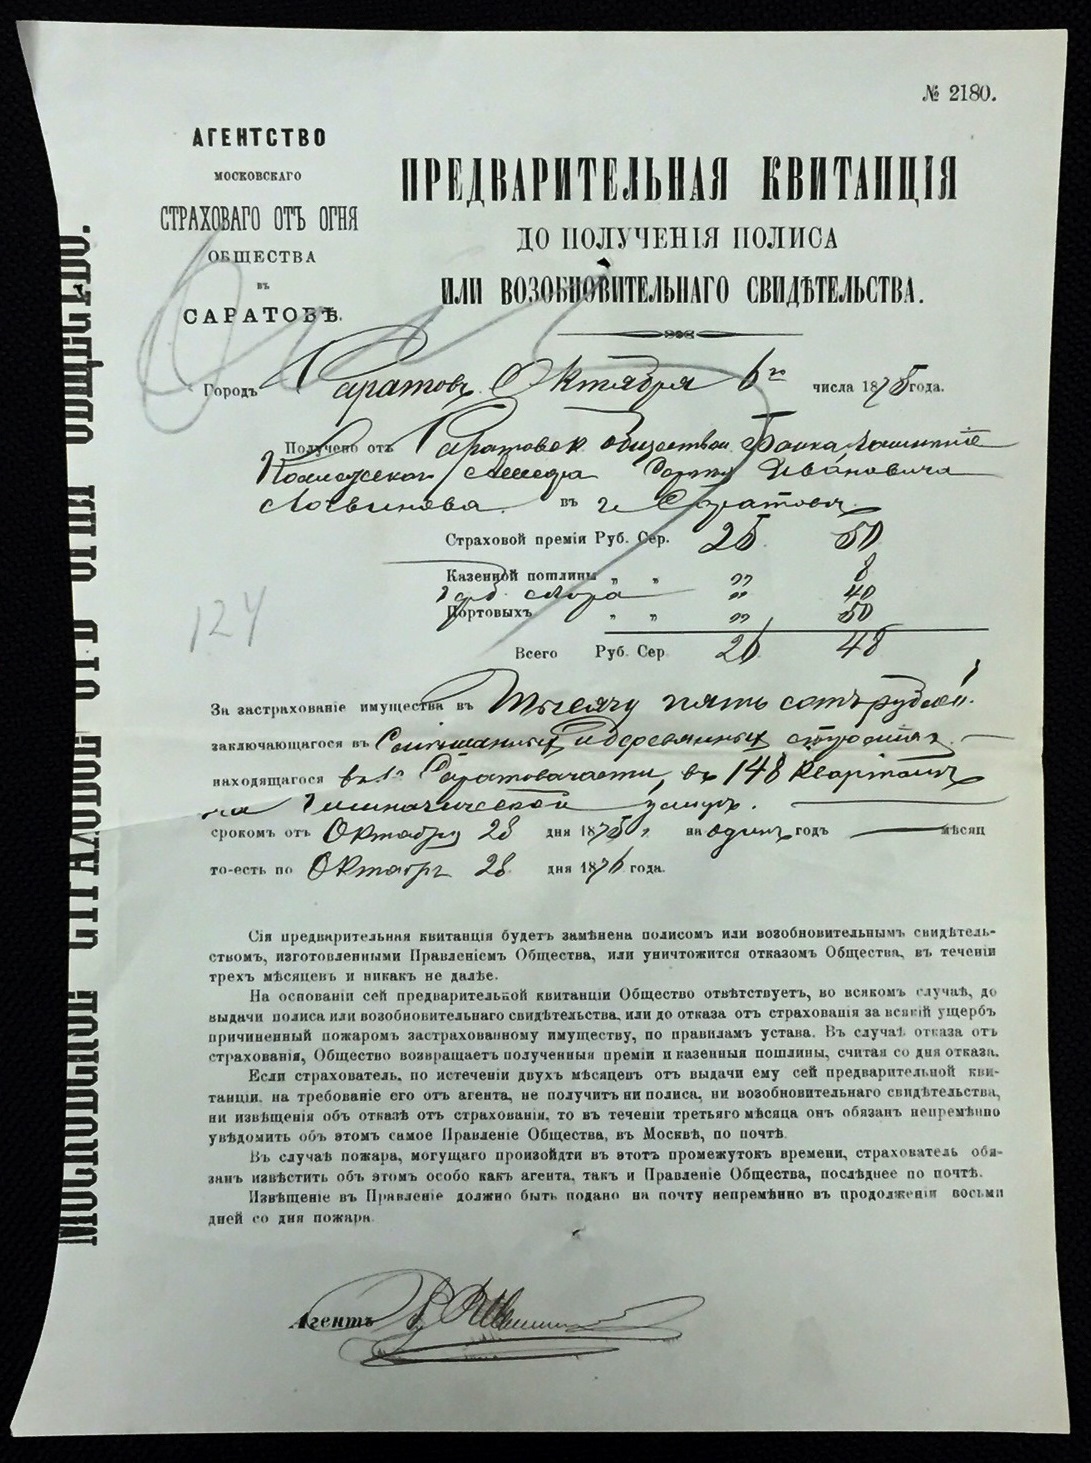 № 2180.
АГЕНТСТВО
МОСКОВСКАГО
СТРАХОВАГО ОТЪ ОГНЯ
ОБЩЕСТВА
ВЪ
САРАТОВѢ.
ПРЕДВАРИТЕЛЬНАЯ КВИТАНЦІЯ
ДО ПОЛУЧЕНІЯ ПОЛИСА
ИЛИ ВОЗОБНОВИТЕЛЬНАГО СВИДѢТЕЛЬСТВА.
МОСКОВСКОЕ СТРАХОВОЕ ОТЪ ОГНЯ ОБЩЕСТВО.
Городъ Саратовъ. Октября 6го числа 1875 года.
Получено отъ Саратовск. обществен. Банка
Ивановича
въ г. Саратовѣ
Страховой преміи Руб. Сер. 25 50
Казенной пошлины „ „ „ 8
Герб. сбора „ 40
Портовыхъ „ „ „ 50
Всего Руб. Сер 26 48
124
За застрахованіе имущества въ Тысячу пять сотъ рублей.
заключающагося въ Смѣшанныхъ и деревянныхъ строеніяхъ
находящагося въ 1й Саратов. части, въ 148 кварталѣ
на Гимназической улицѣ.
срокомъ отъ Октября 28 дня 1875 г. на одинъ годъ — мѣсяц
то-есть по Октября 28 дня 1876 года.
Сія предварительная квитанція будетъ замѣнена полисомъ или возобновительнымъ свидѣтель-
ствомъ, изготовленными Правленіемъ Общества, или уничтожится отказомъ Общества, въ теченіи
трехъ мѣсяцевъ и никакъ не далѣе.
На основаніи сей предварительной квитанціи Общество отвѣтствуетъ, во всякомъ случаѣ, до
выдачи полиса или возобновительнаго свидѣтельства, или до отказа отъ страхованія за всякій ущербъ
причиненный пожаромъ застрахованному имуществу, по правиламъ устава. Въ случаѣ отказа отъ
страхованія, Общество возвращаетъ полученныя преміи и казенныя пошлины, считая со дня отказа.
Если страхователь, по истеченіи двухъ мѣсяцевъ отъ выдачи ему сей предварительной кви-
танціи, на требованіе его отъ агента, не получитъ ни полиса, ни возобновительнаго свидѣтельства,
ни извѣщенія объ отказѣ отъ страхованія, то въ теченіи третьяго мѣсяца онъ обязанъ непремѣнно
увѣдомить объ этомъ самое Правленіе Общества, въ Москвѣ, по почтѣ.
Въ случаѣ пожара, могущаго произойдти въ этотъ промежутокъ времени, страхователь обя-
занъ извѣстить объ этомъ особо какъ агента, такъ и Правленіе Общества, послѣднее по почтѣ.
Извѣщеніе въ Правленіе должно быть подано на почту непремѣнно въ продолженіи восьми
дней со дня пожара.
Агентъ